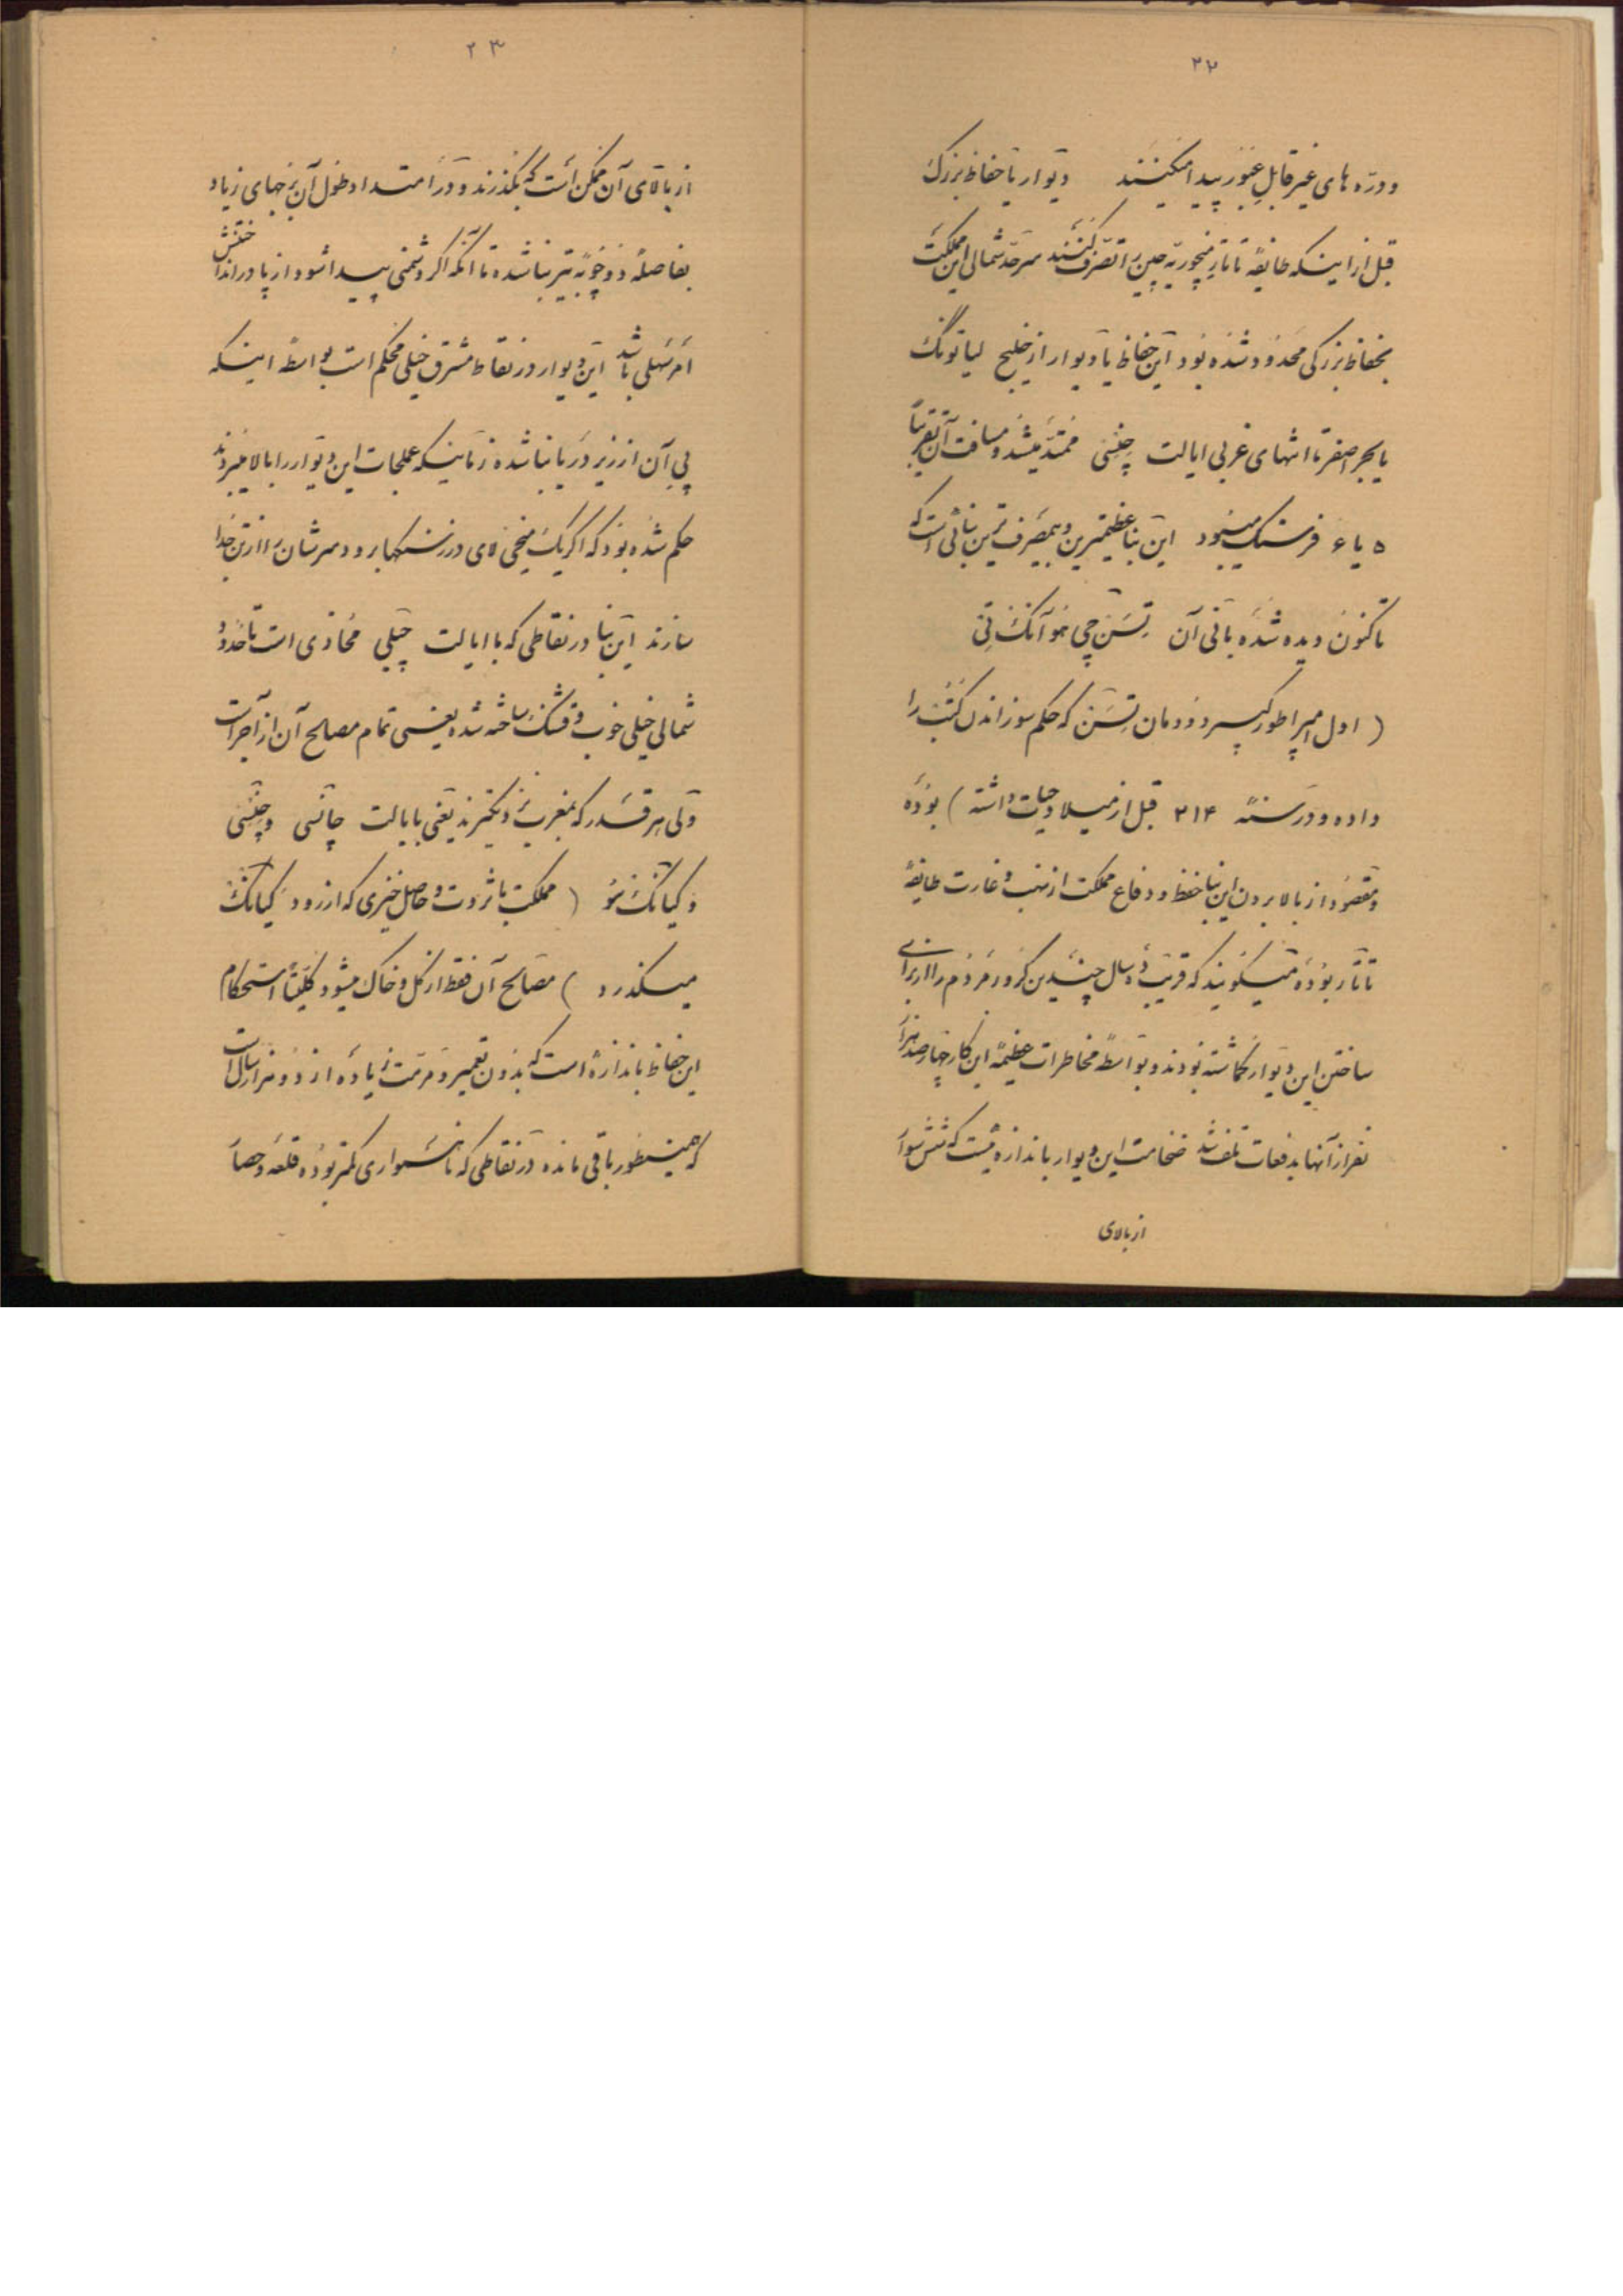 ۲۲
و درّه های غیر قابل عبور پیدا میکنند دیوار یا حفاظ بزرک
قبل از اینکه طایفهٔ تاتار منچوریه چین را تصرّف کنند سرحدّ شمالی این مملکت
بحفاظ بزرکی محدود شده بود این حفاظ یا دیوار از خلیج لیاتونک
یا بحر اصفر تا انتهای غربی ایالت چنسی ممتدّ میشد و مسافت آن تقریباً
۵ یا ۶ فرسنک میبود این بنا عظیمترین و بیمصرف ترین بنائی است که
تا کنون دیده شده بانی آن تسن چی هوآنک تی
( اول امپراطور کبیر دودمان تسن که حکم سوزاندن کتب را
داده و در سنهٔ ۲۱۴ قبل از میلاد حیات داشته ) بوده
و مقصود از بالا بردن این بنا حفظ و دفاع مملکت از نهب و غارت طایفهٔ
تاتار بوده میگویند که قریب ده سال چندین کرور مردم را از برای
ساختن این دیوار گماشته بودند و بواسطهٔ مخاطرات عظیمهٔ این کار چهار صد هزار
نفر از آنها بدفعات تلف شد ضخامت این دیوار باندازه ئیست که شش سوار
از بالای
۲۳
از بالای آن ممکن است که بگذرند و در امتداد طول آن برجهای زیاد
بفاصلهٔ دو چوبه تیر بنا شده تا آنکه اگر دشمنی پیدا شود از پا در انداختنش
امر سهلی باشد این دیوار در نقاط مشرق خیلی محکم است بواسطهٔ اینکه
پی آن از زیر دریا بنا شده زمانیکه عملجات این دیوار را بالا میبردند
حکم شده بود که اگر یک میخی لای درز سنکها برود سرشان را از تن جدا
سازند این بنا در نقاطی که با ایالت چیلی محاذی است تا حدود
شمالی خیلی خوب و قشنک ساخته شده یعنی تمام مصالح آن از آجر است
ولی هر قدر که بمغرب نزدیکترند یعنی بایالت چانسی و چنسی
و کیانک سو ( مملکت با ثروت و حاصل خیزی که از رود کیانک
میگذرد ) مصالح آن فقط از گل و خاک میشود کلیتاً استحکام
این حفاظ باندازهٔ است که بدون تعمیر و مرمّت زیاده از دو هزار سال است
که همینطور باقی مانده در نقاطی که ناهمواری کمتر بوده قلعه و حصار